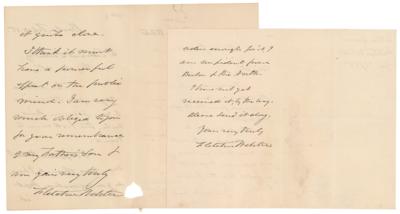 it quite clear.
I think it must
have a powerful
effect on the public
mind. I am very
much obliged to you
for your remembrance
of my Father's Son &
am yours very truly
Fletcher Webster
enough for it I
am confident from
the South.
I have not yet
received it, by the way.
Please send it along.
Yours very truly
Fletcher Webster